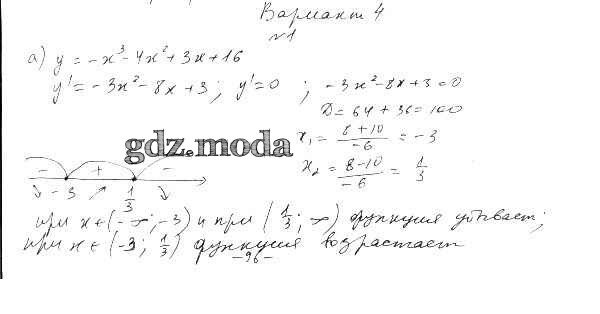 Вариант 4
№1
а) y = -x³ - 4x² + 3x + 16
y' = -3x² - 8x + 3; y' = 0; -3x² - 8x + 3 = 0
D = 64 + 36 = 100
x₁ = (8+10)/(-6) = -3
x₂ = (8-10)/(-6) = 1/3
gdz.moda
- + -
↘ -3 ↗ 1/3 ↘
при x ∈ (-∞; -3) и при (1/3; ∞) функция убывает;
при x ∈ (-3; 1/3) функция возрастает
-96-